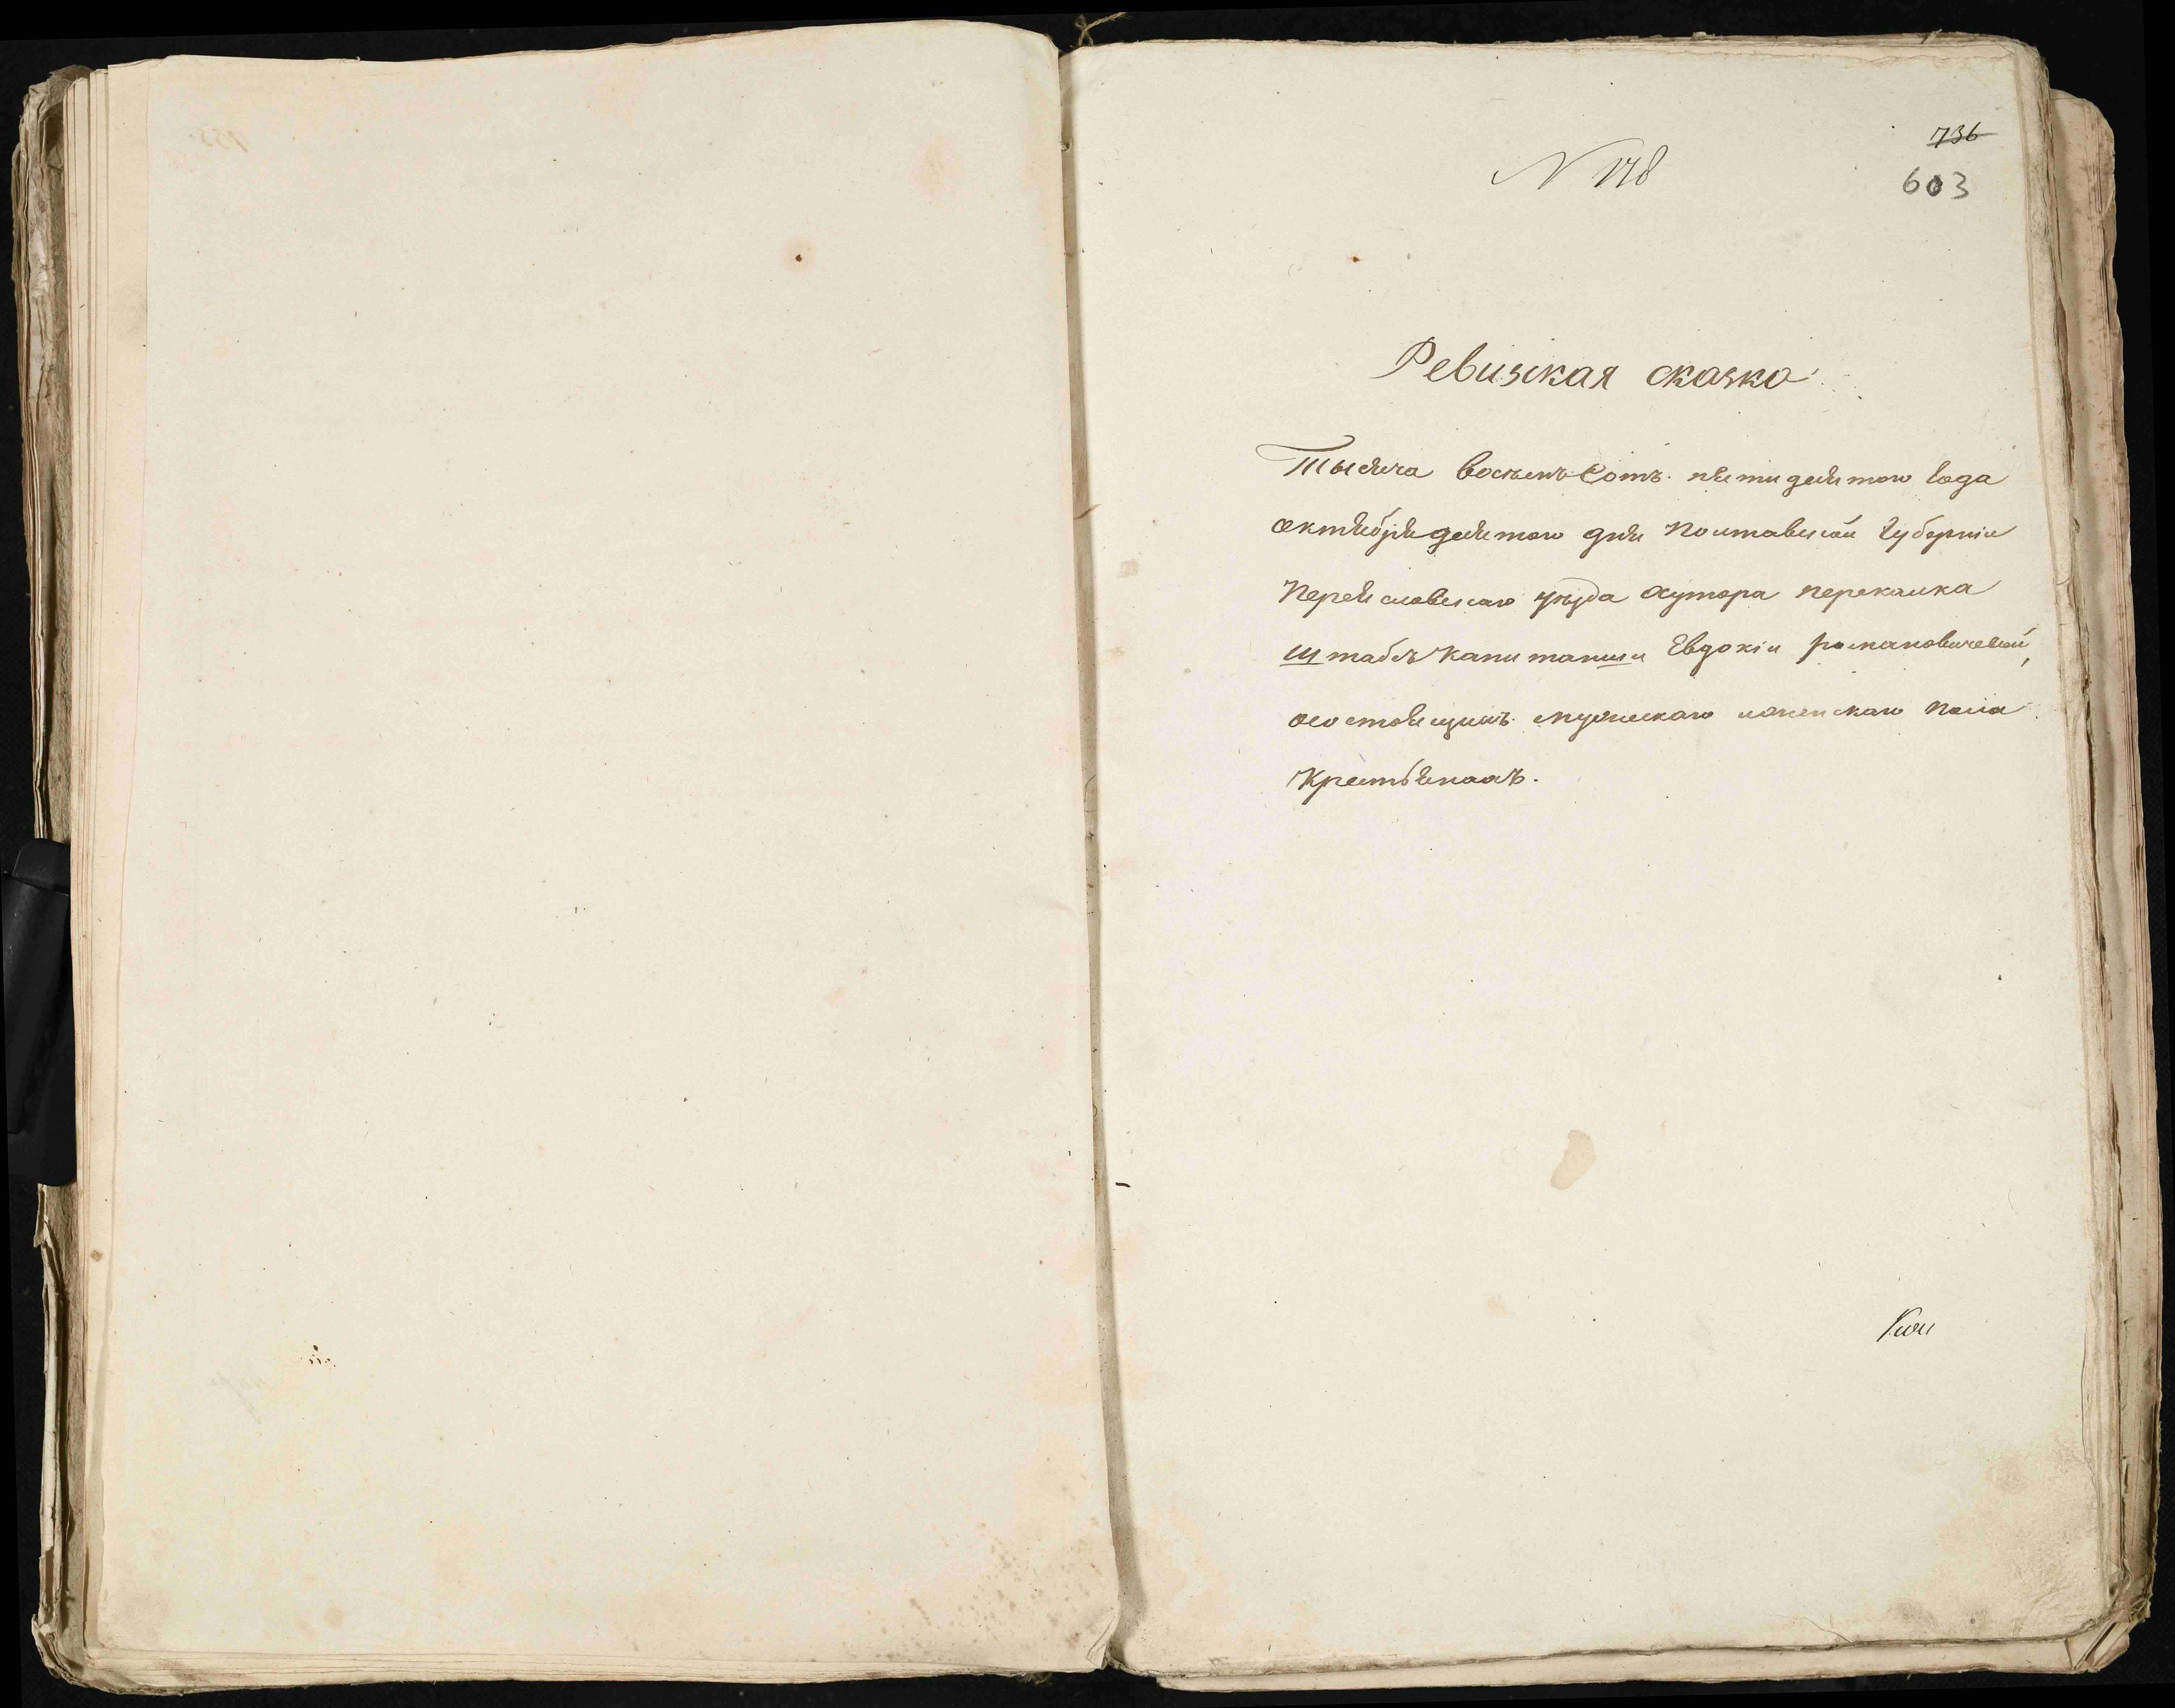 736
N 178
603
Ревизская сказка
Тысяча восемьсотъ пятидесятого года
октября десятого дня Полтавской Губерніи
Переясловского уѣзда хутора перекалка
штабсъ капитанши Евдокіи романовичевой,
о состоящихъ мужеска и женскаго пола
Крестьянахъ.